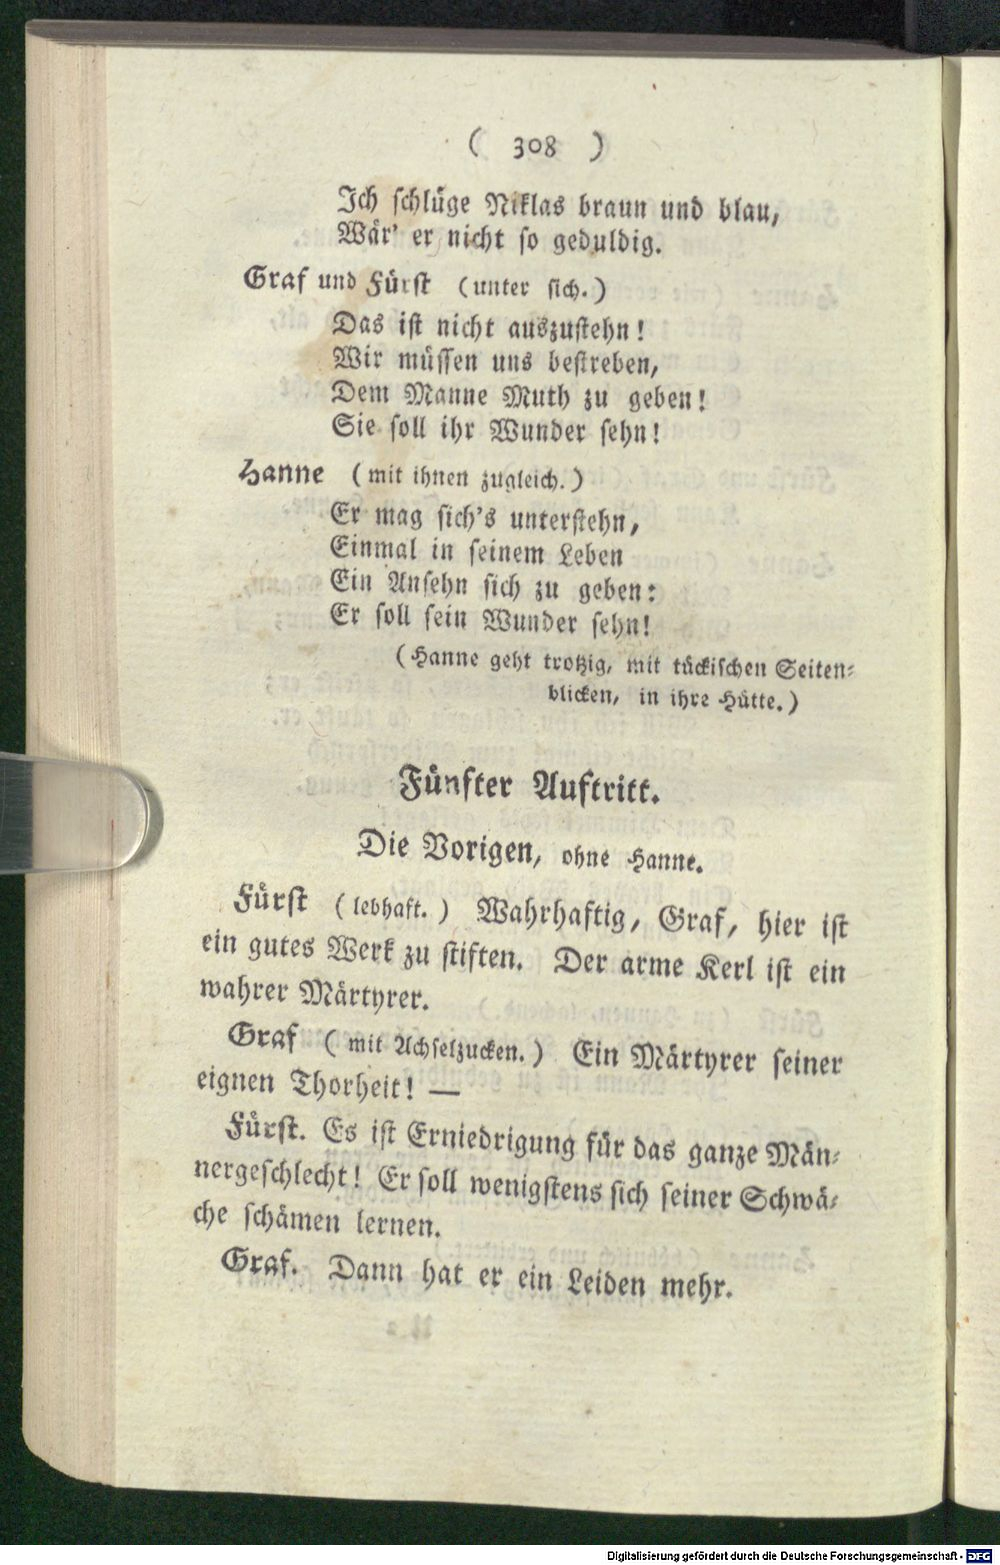 ( 308 )
Ich schlüge Niklas braun und blau,
Wär' er nicht so geduldig.
Graf und Fürst (unter sich.)
Das ist nicht auszustehn!
Wir müssen uns bestreben,
Dem Manne Muth zu geben!
Sie soll ihr Wunder sehn!
Hanne (mit ihnen zugleich.)
Er mag sich's unterstehn,
Einmal in seinem Leben
Ein Ansehn sich zu geben:
Er soll sein Wunder sehn!
(Hanne geht trotzig, mit tückischen Seiten-
blicken, in ihre Hütte.)
Fünfter Auftritt.
Die Vorigen, ohne Hanne.
Fürst (lebhaft.) Wahrhaftig, Graf, hier ist
ein gutes Werk zu stiften. Der arme Kerl ist ein
wahrer Märtyrer.
Graf (mit Achselzucken.) Ein Märtyrer seiner
eignen Thorheit! —
Fürst. Es ist Erniedrigung für das ganze Män-
nergeschlecht! Er soll wenigstens sich seiner Schwä-
che schämen lernen.
Graf. Dann hat er ein Leiden mehr.
Digitalisierung gefördert durch die Deutsche Forschungsgemeinschaft - DFG